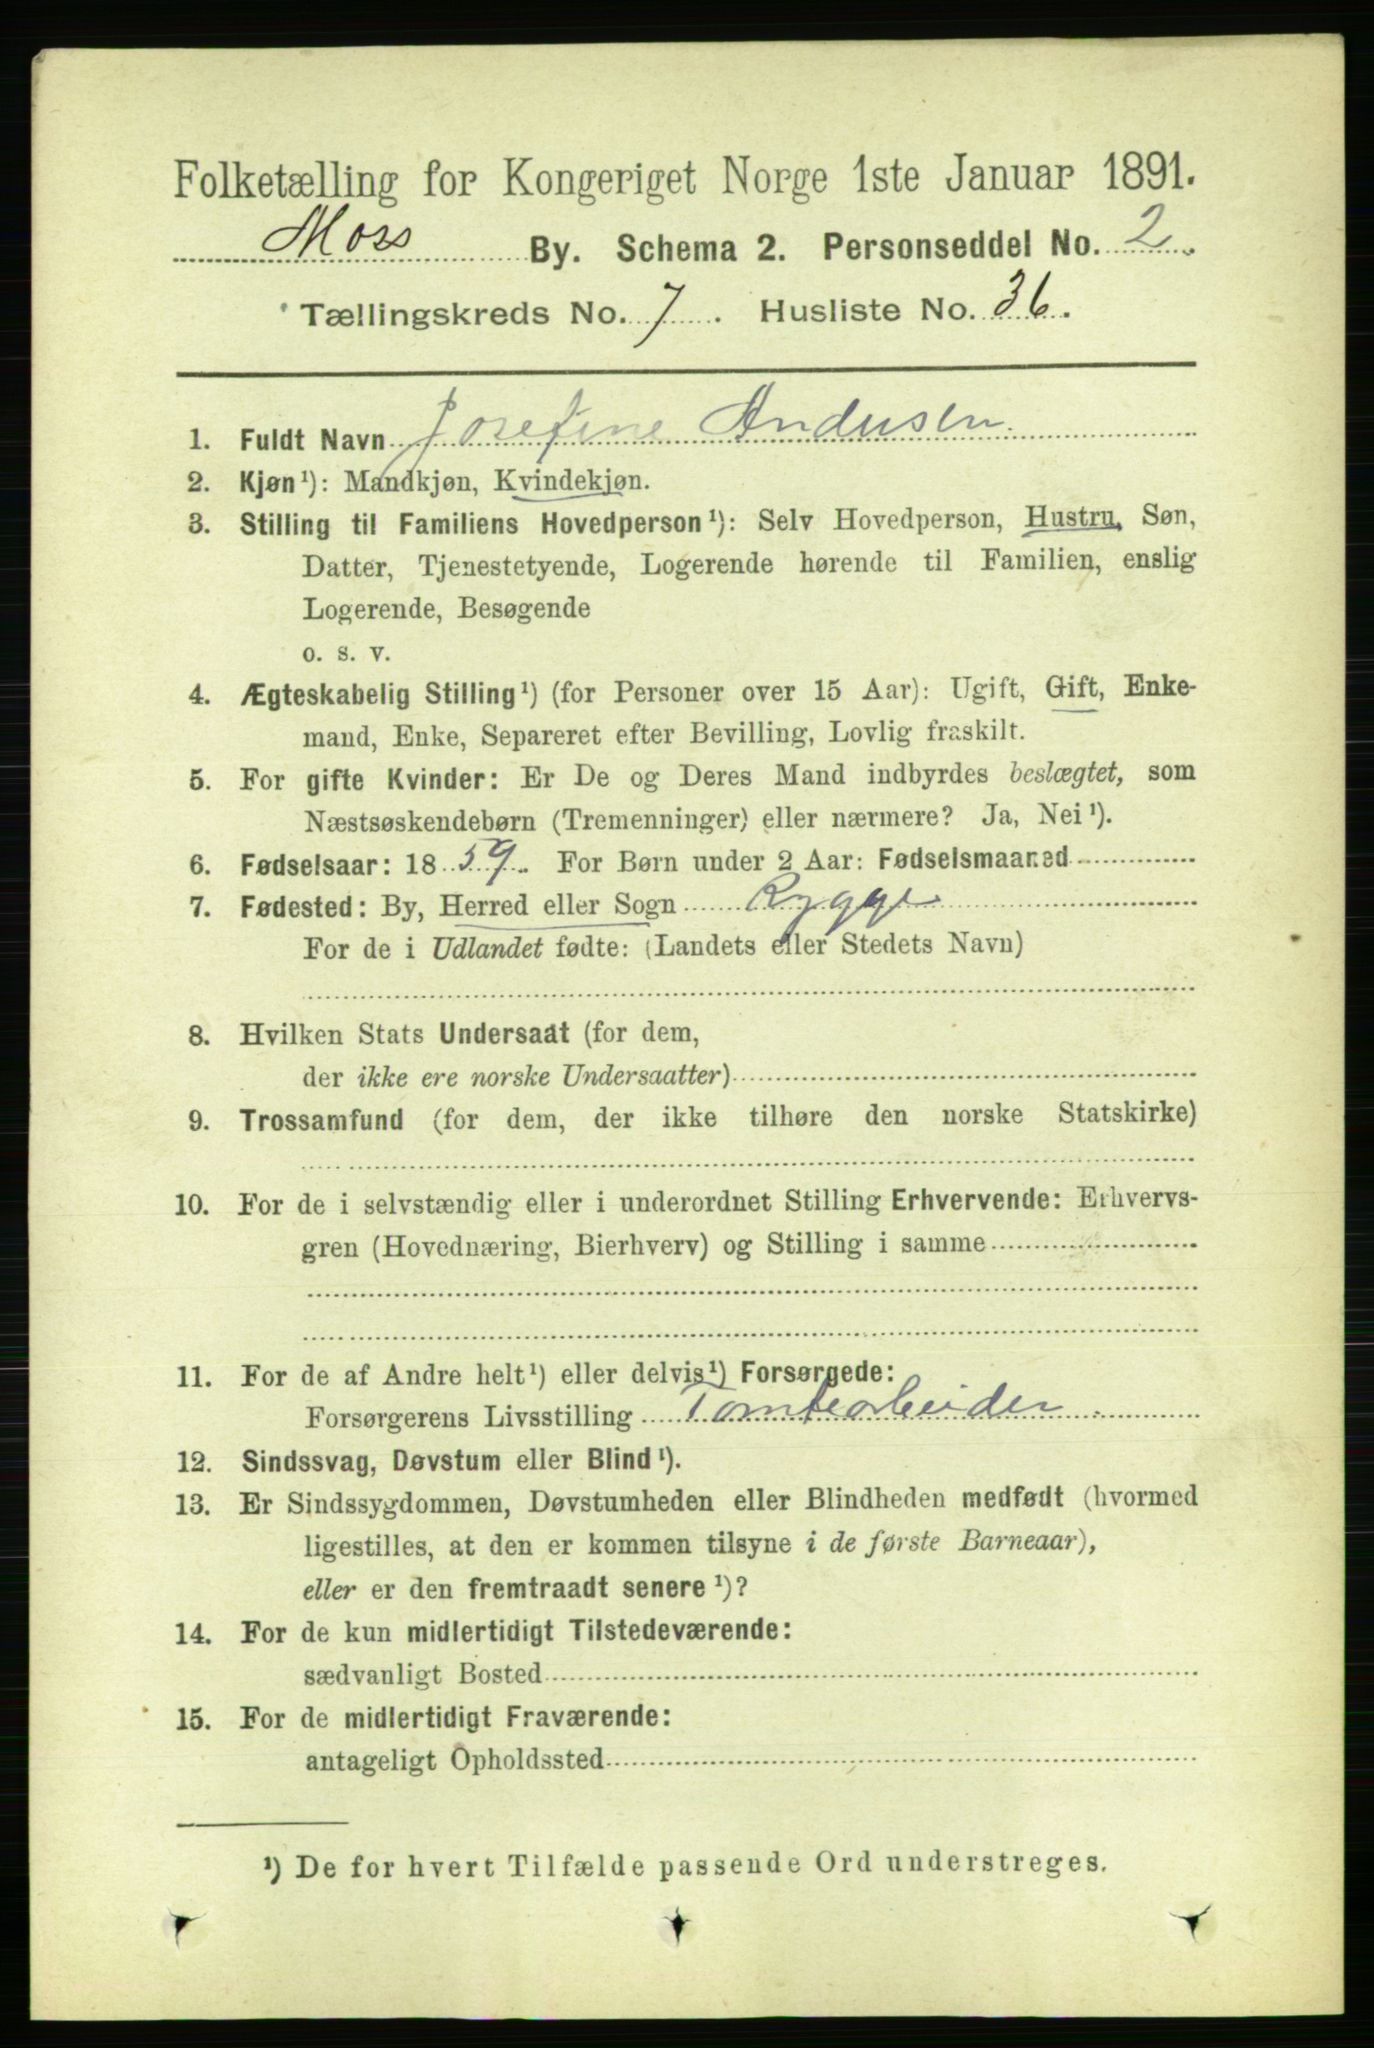 Folketælling for Kongeriget Norge 1ste Januar 1891.
Moss By. Schema 2. Personseddel No. 2.
Tællingskreds No. 7. Husliste No. 36.
1. Fuldt Navn Josefine Andersen.
2. Kjøn¹): Mandkjøn, Kvindekjøn.
3. Stilling til Familiens Hovedperson¹): Selv Hovedperson, Hustru, Søn,
Datter, Tjenestetyende, Logerende hørende til Familien, enslig
Logerende, Besøgende
o. s. v.
4. Ægteskabelig Stilling¹) (for Personer over 15 Aar): Ugift, Gift, Enke-
mand, Enke, Separeret efter Bevilling, Lovlig fraskilt.
5. For gifte Kvinder: Er De og Deres Mand indbyrdes beslægtet, som
Næstsøskendebørn (Tremenninger) eller nærmere? Ja, Nei¹).
6. Fødselsaar: 1859. For Børn under 2 Aar: Fødselsmaaned
7. Fødested: By, Herred eller Sogn Rygge
For de i Udlandet fødte: (Landets eller Stedets Navn)
8. Hvilken Stats Undersaat (for dem,
der ikke ere norske Undersaatter)
9. Trossamfund (for dem, der ikke tilhøre den norske Statskirke)
10. For de i selvstændig eller i underordnet Stilling Erhvervende: Erhvervs-
gren (Hovednæring, Bierhverv) og Stilling i samme
11. For de af Andre helt¹) eller delvis¹) Forsørgede:
Forsørgerens Livsstilling Tomtearbeider.
12. Sindssvag, Døvstum eller Blind¹).
13. Er Sindssygdommen, Døvstumheden eller Blindheden medfødt (hvormed
ligestilles, at den er kommen tilsyne i de første Barneaar),
eller er den fremtraadt senere¹)?
14. For de kun midlertidigt Tilstedeværende:
sædvanligt Bosted
15. For de midlertidigt Fraværende:
antageligt Opholdssted
¹) De for hvert Tilfælde passende Ord understreges.